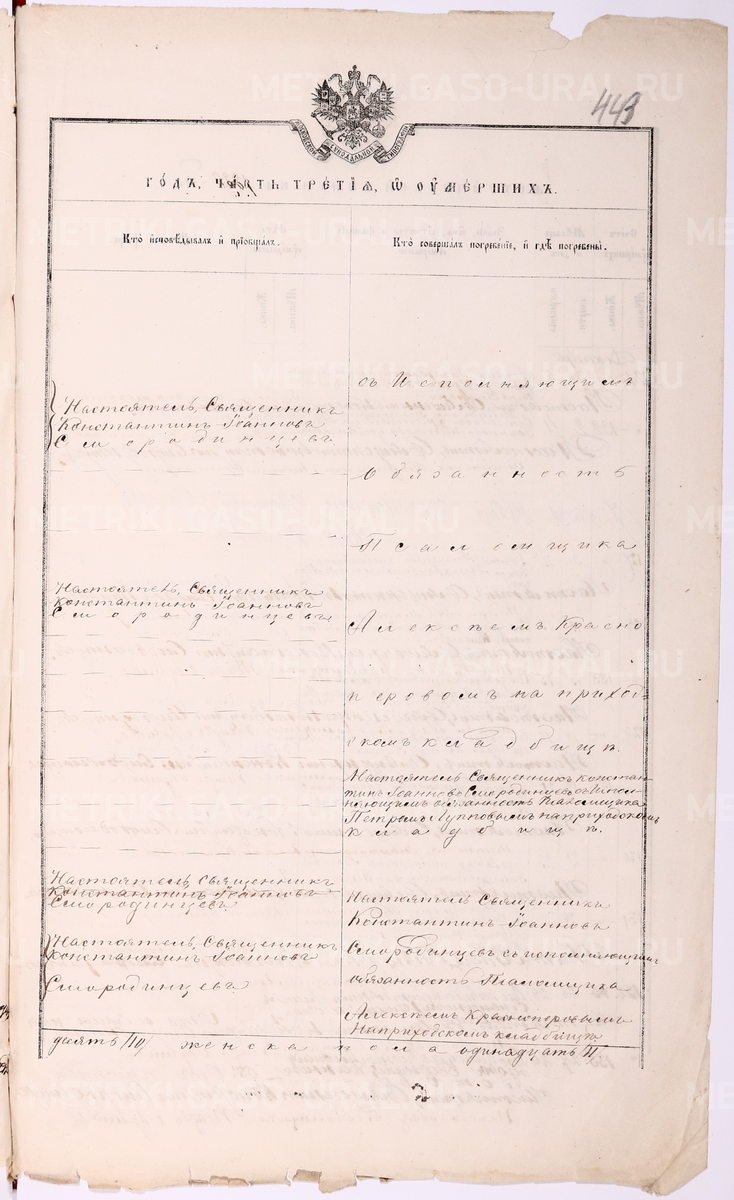 METRIKI.GASO-URAL.RU
443
МОСКОВСКОЙ СѴНОДАЛЬНОЙ ТИПОГРАФІИ
ГОДЪ, ЧАСТЬ ТРЕТІЯ, Ѡ ОУМЕРШИХЪ.
Кто исповѣдывалъ и пріобщалъ.
Кто совершалъ погребеніе, и гдѣ погребены.
Настоятель, Священникъ
Константинъ Іоанновъ
Смородинцевъ
Настоятель, Священникъ
Константинъ Іоанновъ
Смородинцевъ
Настоятель, Священникъ
Константинъ Іоанновъ
Смородинцевъ
Настоятель, Священникъ
Константинъ Іоанновъ
Смородинцевъ
съ Исполняющимъ
Обязанность
Псаломщика
Алексѣемъ Красно
перовомъ на приход-
скомъ кладбищѣ.
Настоятель Священникъ Констан-
тинъ Іоанновъ Смородинцевъ съ Испол-
няющимъ обязанность Псаломщика
Петромъ Лупповымъ на приходскомъ
кладбищѣ.
Настоятель Священникъ
Константинъ Іоанновъ
Смородинцевъ съ исполняющимъ
обязанность Псаломщика
Алексѣемъ Красноперовымъ
На приходскомъ кладбищѣ
десять /10/ женска пола одинадцать /11/